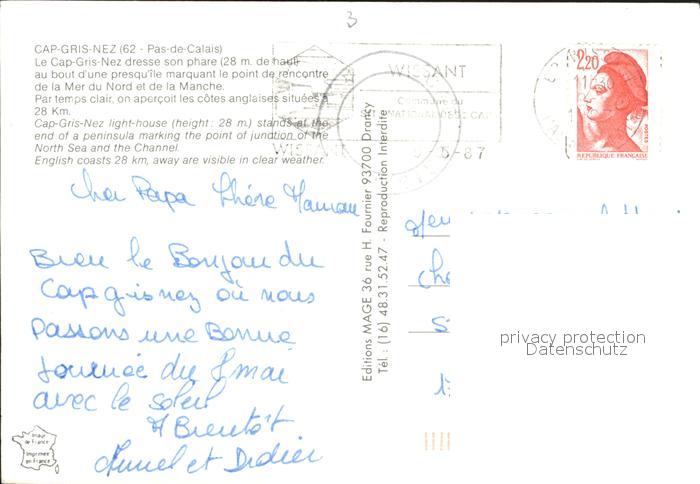 3
CAP-GRIS-NEZ (62 - Pas-de-Calais)
Le Cap-Gris-Nez dresse son phare (28 m. de haut)
au bout d'une presqu'île marquant le point de rencontre
de la Mer du Nord et de la Manche.
Par temps clair, on aperçoit les côtes anglaises situées à
28 Km.
Cap-Gris-Nez light-house (height : 28 m.) stands at the
end of a peninsula marking the point of junction of the
North Sea and the Channel.
English coasts 28 km, away are visible in clear weather.
WISSANT
Commune du
WISSANT
5-87
2,20
POSTES
REPUBLIQUE FRANÇAISE
Cher Papa Chère Maman
Bien le Bonjour du
Cap gris nez où nous
passons une Bonne
journée du 8 mai
avec le soleil
A Bientôt
et Didier
Editions MAGE 36 rue H. Fournier 93700 Drancy
Tél. : (16) 48.31.52.47 - Reproduction Interdite
privacy protection
Datenschutz
Imprimée
en France